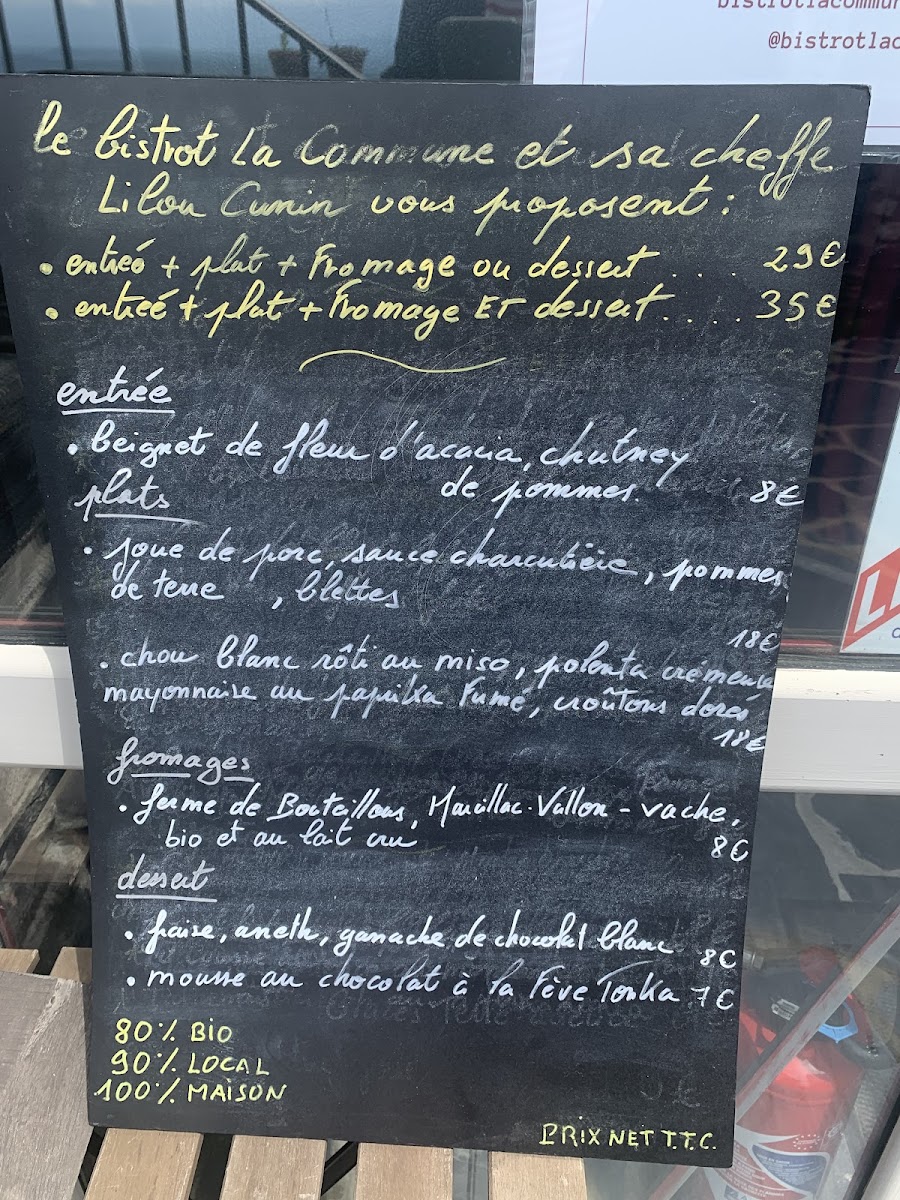 bistrotlacommun
@bistrotlac
le bistrot La Commune et sa cheffe
Lilou Cunin vous proposent :
• entrée + plat + Fromage ou dessert .... 29€
• entreé + plat + Fromage ET dessert..... 35€
entrée
• beignet de fleur d'acacia, chutney
de pommes. 8€
plats
• joue de porc, sauce charcutière, pommes
de terre , blettes
18€
• chou blanc rôti au miso, polenta crémeuse
mayonnaise au paprika Fumé, croûtons dorés
18€
fromages
• ferme de Bouteillous, Marcillac-Vallon - vache,
bio et au lait cru 8€
dessert
• fraise, aneth, ganache de chocolat blanc 8€
• mousse au chocolat à la Fève Tonka 7€
80% BiO
90% LOCAL
100% MAiSON
PRiX NET T.T.C.